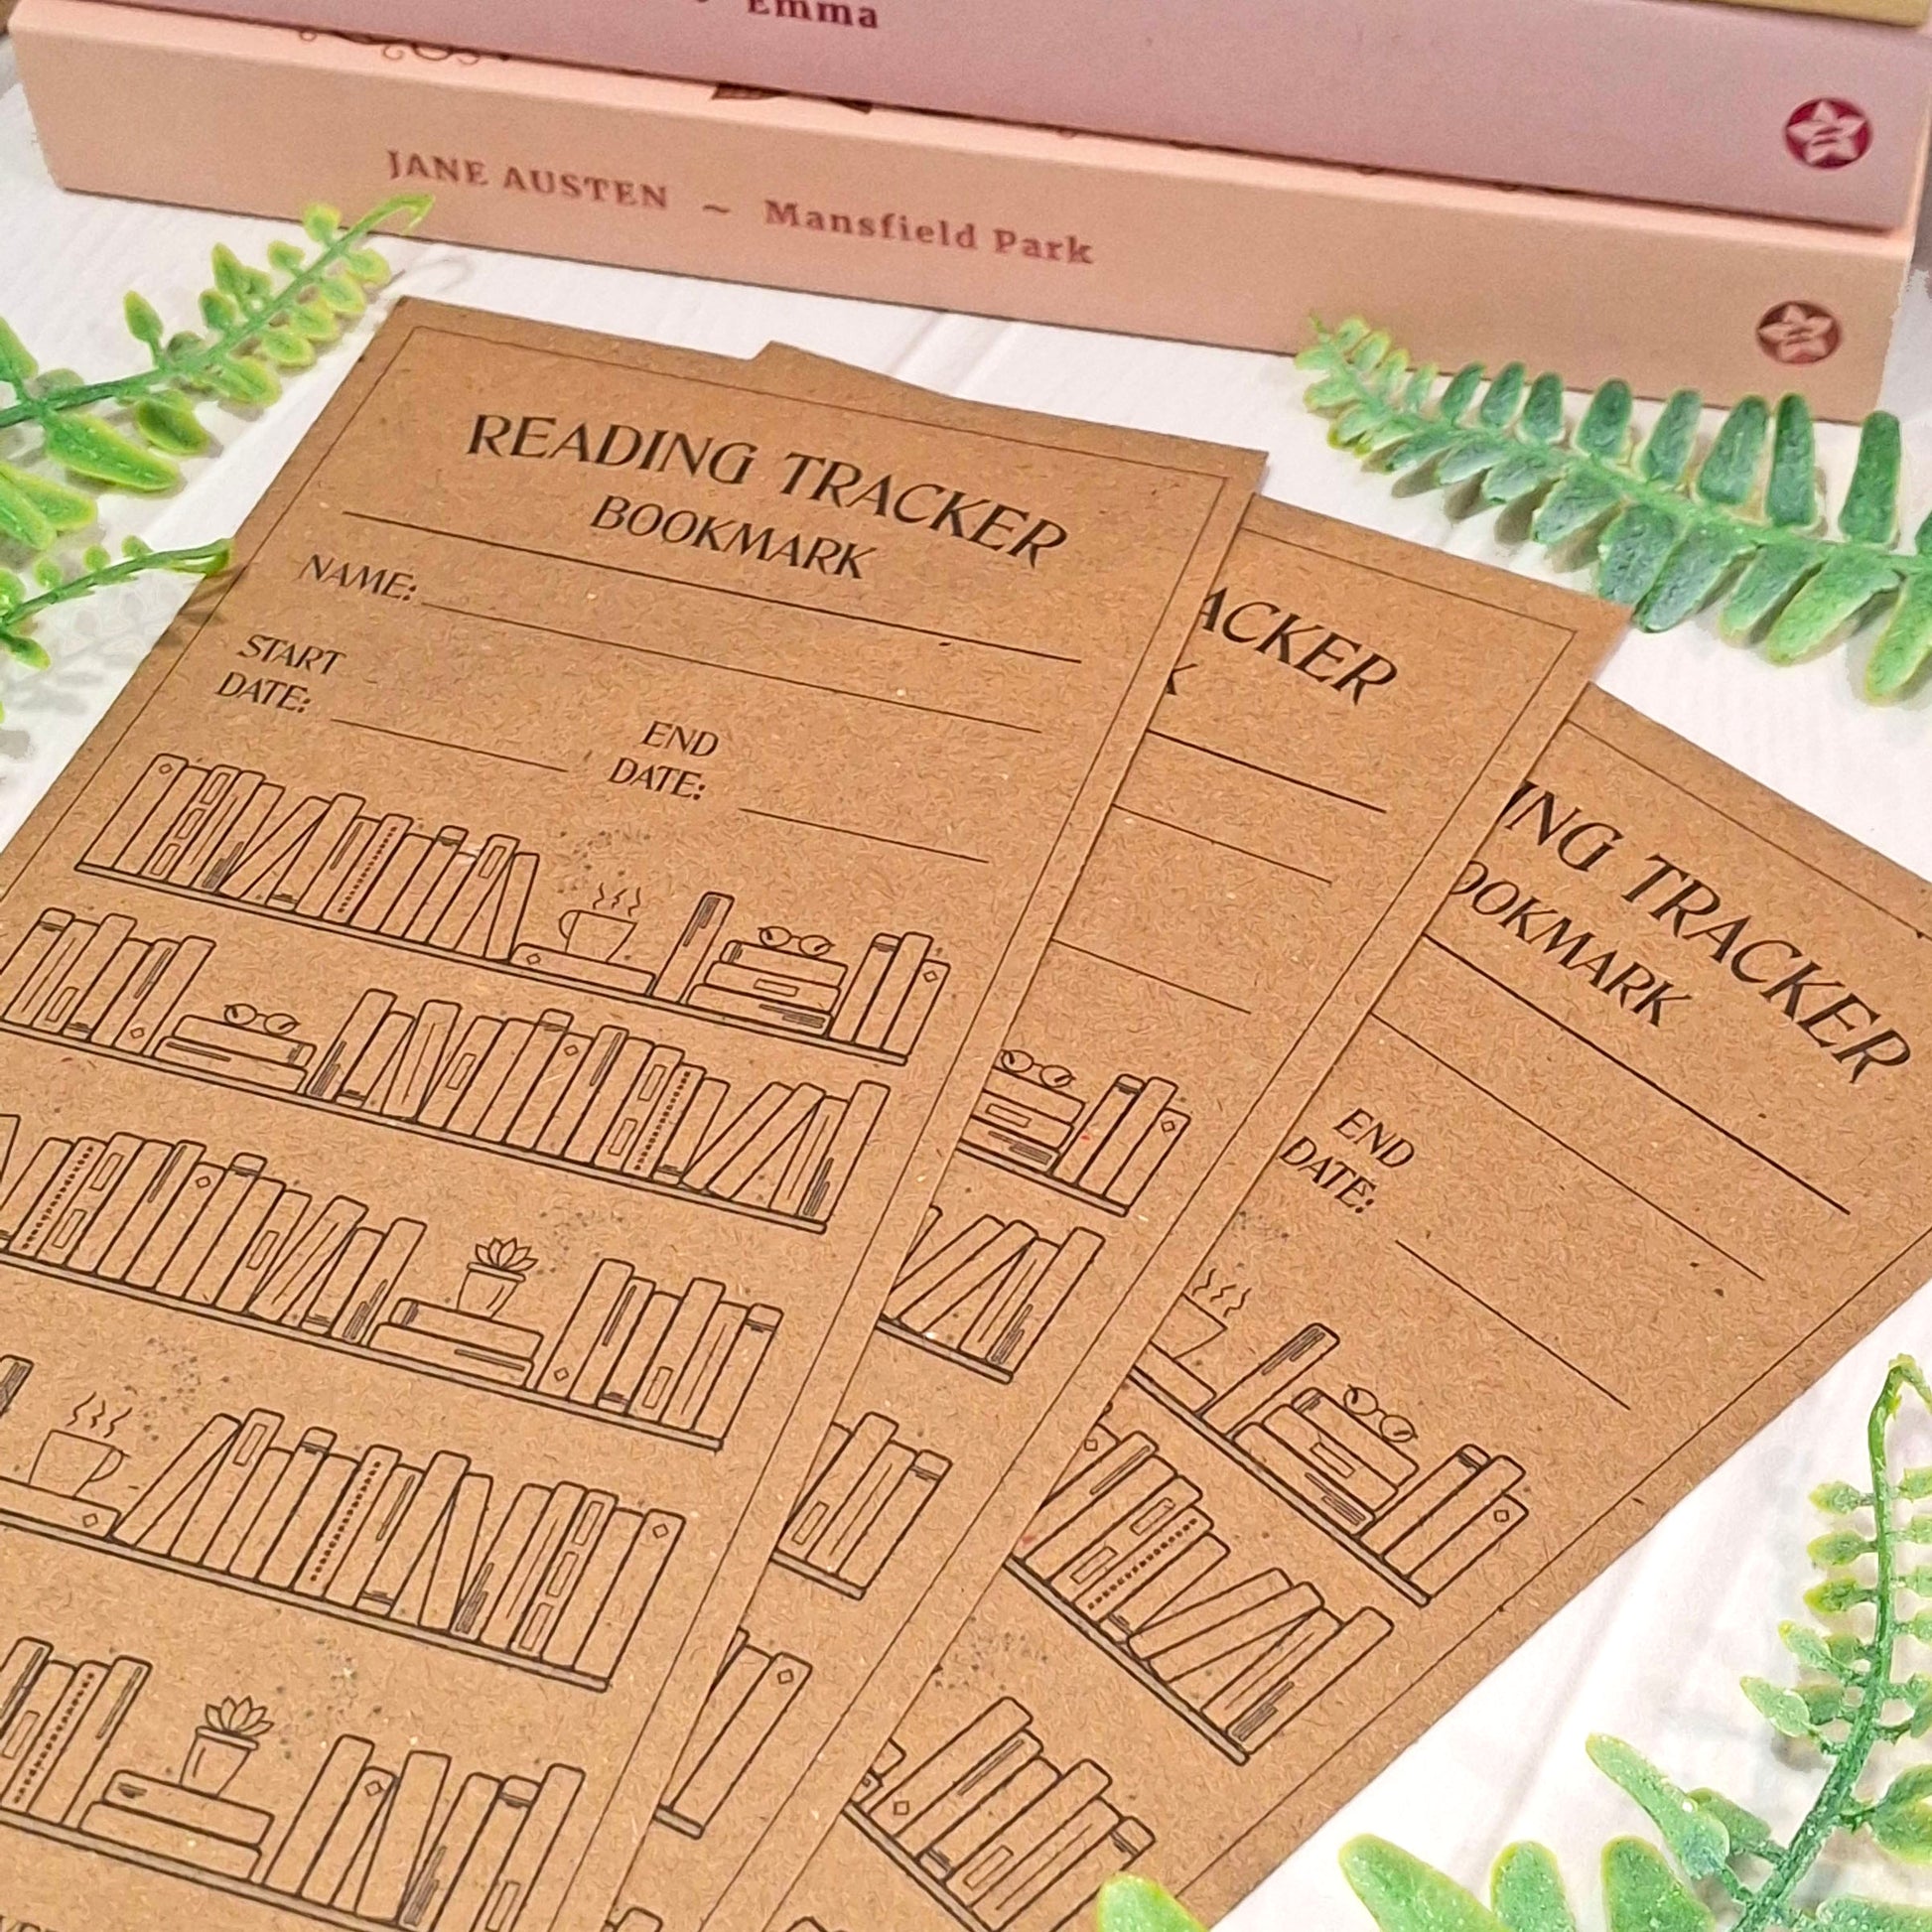 Emma
JANE AUSTEN ~ Mansfield Park
READING TRACKER
BOOKMARK
NAME:
START
DATE:
END
DATE:
ACKER
K
ING TRACKER
OOKMARK
END
DATE: